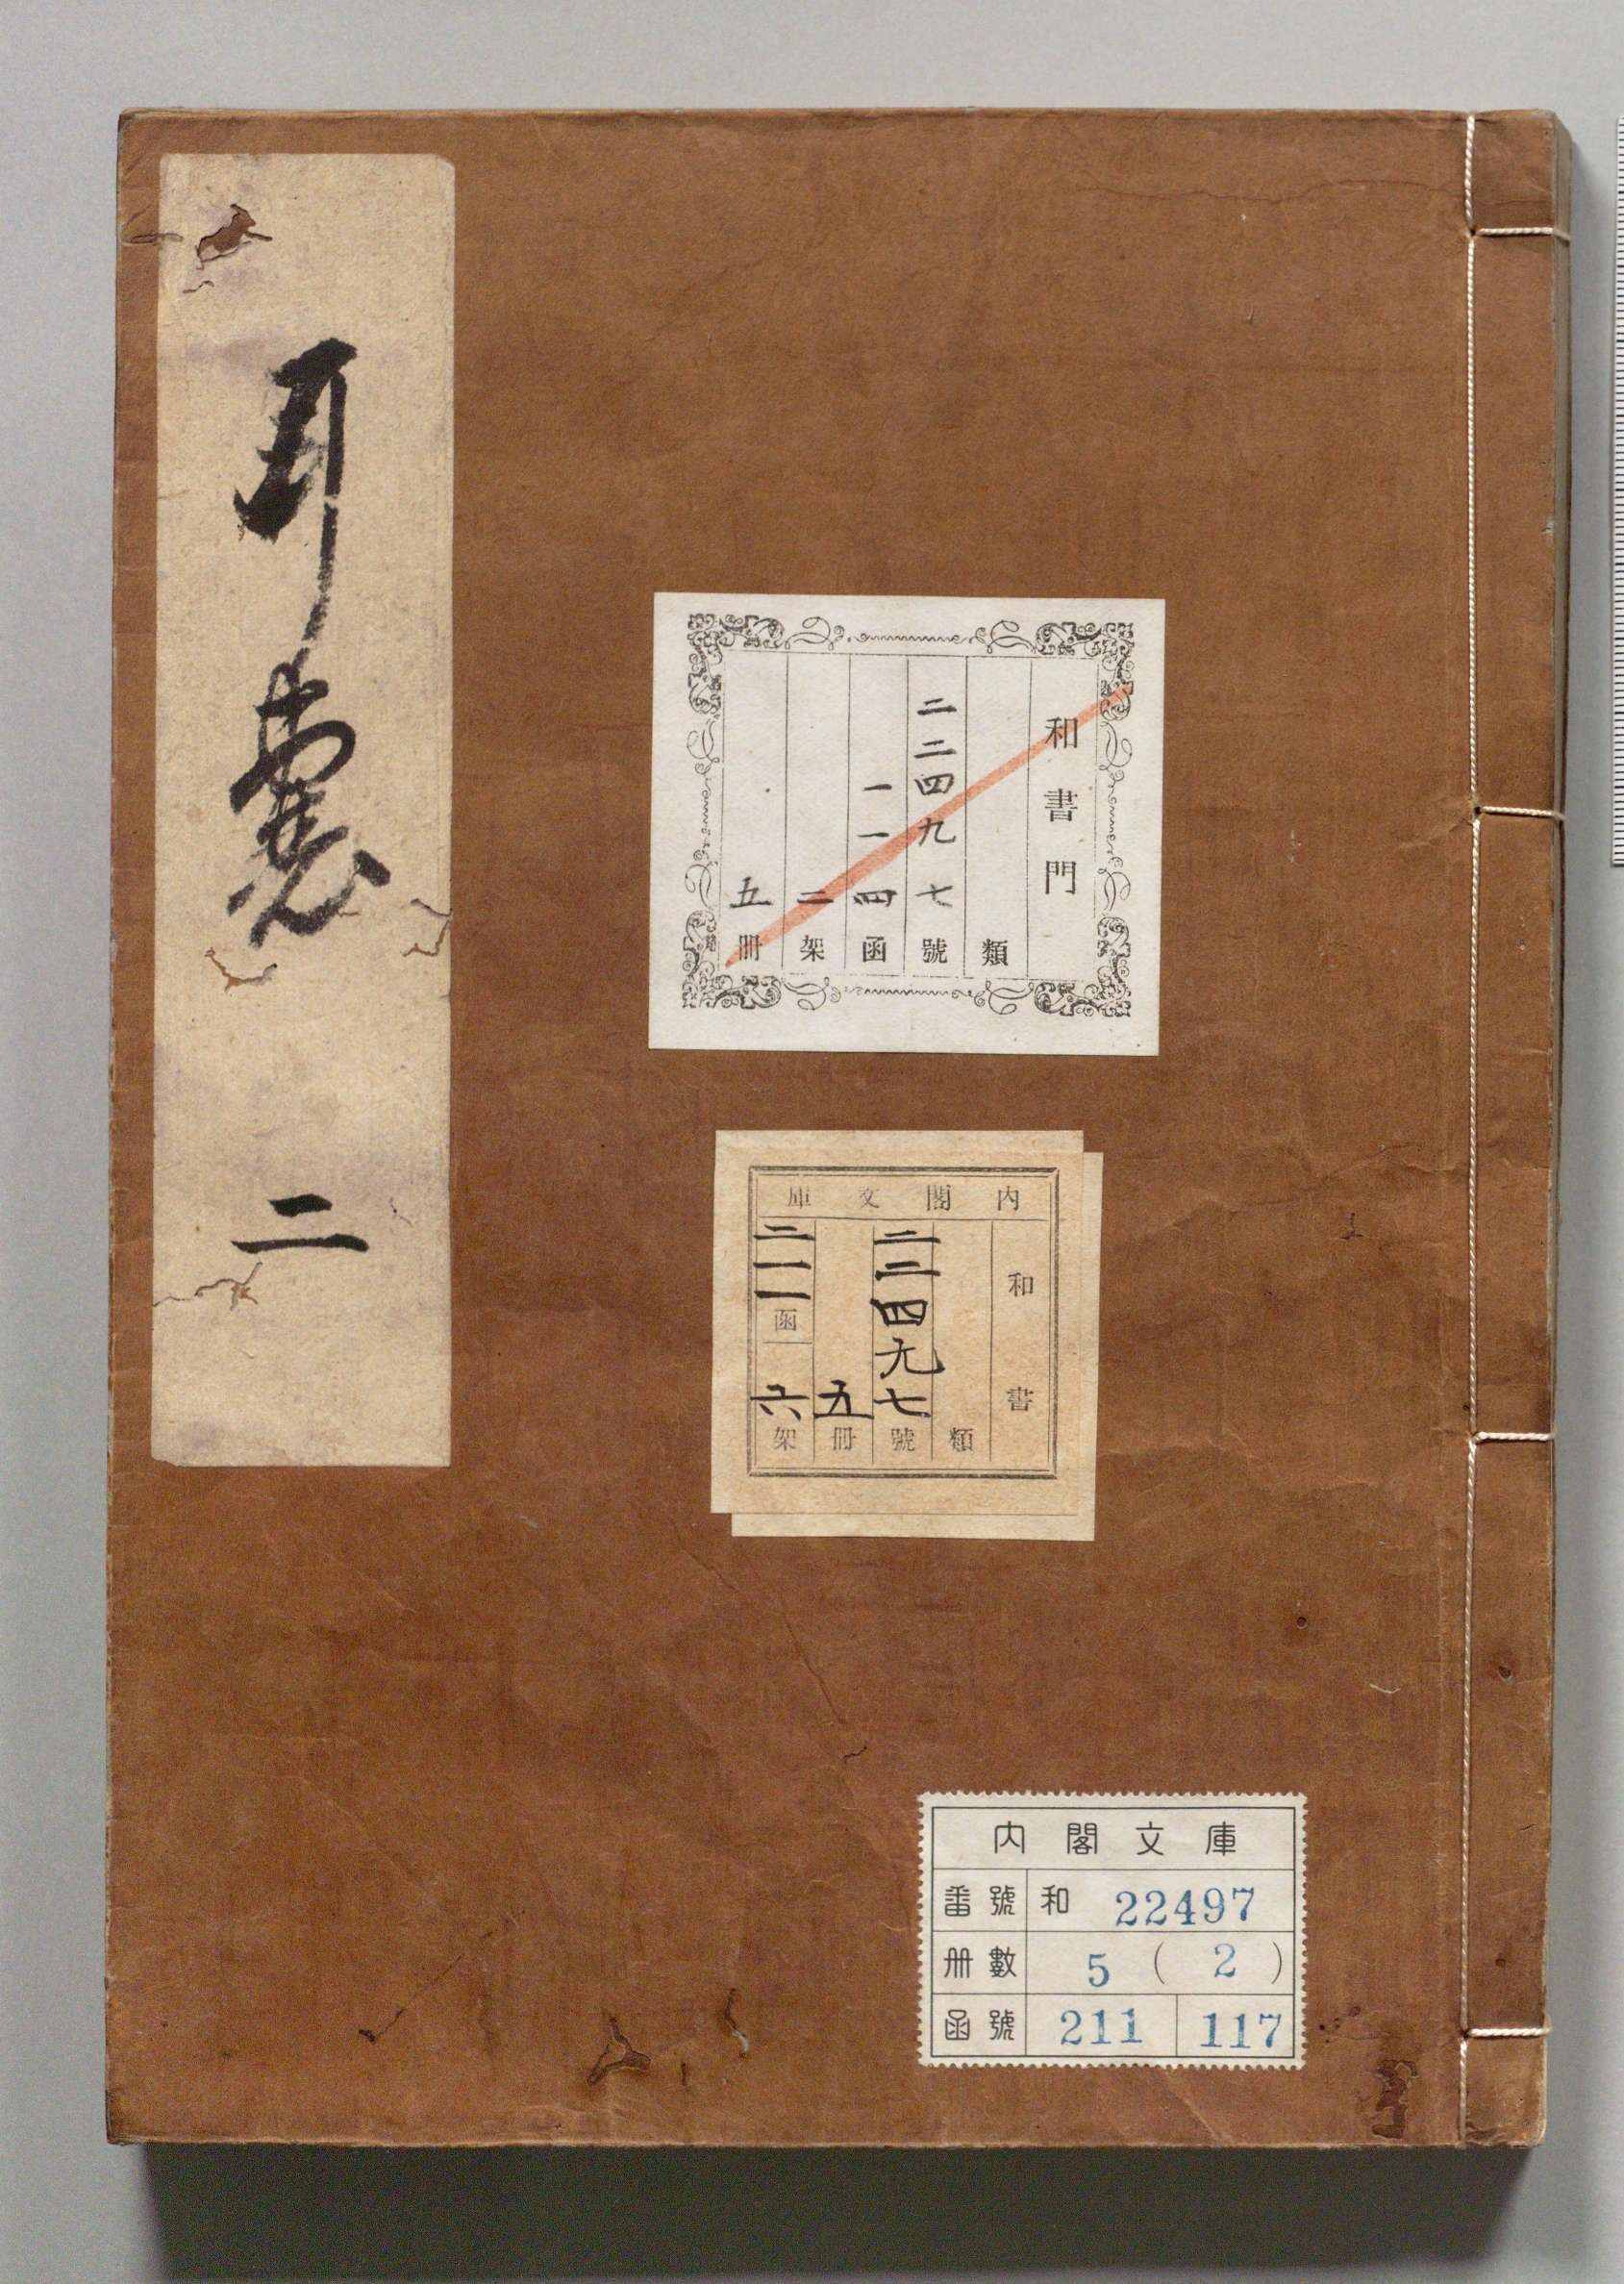 耳嚢
二
和書門
類
二二四九七號
一一四函
二架
五冊
内閣文庫
和書
類
二二四九七號
五冊
二一一函
六架
内閣文庫
番號 和 22497
冊數 5 ( 2 )
函號 211 117